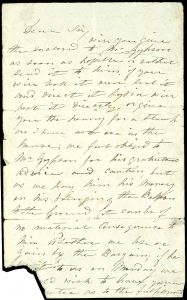 Dear Sir,
will you give
the enclosed to Mr Gypson
as soon as possible or rather
send it to him if you
will post it
direct it
post it directly or give
you the money for a stamp
we have not one in the
house, we feel obliged to
Mr Gypson for his gratuitous
advice and caution but
as we pay him his money
on his bringing the Balloon
to the ground it can be of
no material consequence to
him whether we lose or
gain by the Bargain, if he
to us on Monday we
wish to have your
as to the